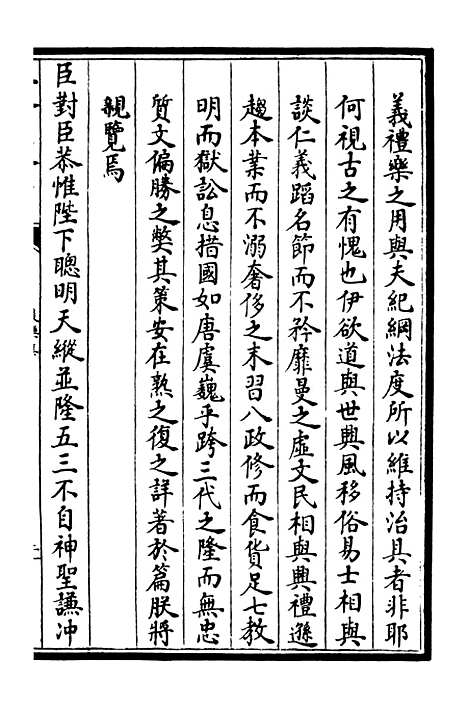 義禮樂之用與夫紀綱法度所以維持治具者非耶
何視古之有愧也伊欲道與世興風移俗易士相與
談仁義蹈名節而不矜靡曼之虛文民相與興禮遜
趨本業而不溺奢侈之末習八政修而食貨足七教
明而獄訟息措國如唐虞巍乎跨三代之隆而無忠
質文偏勝之獘其策安在熟之復之詳著於篇朕將
親覽焉
臣對臣恭惟陛下聰明天縱並隆五三不自神聖謙冲